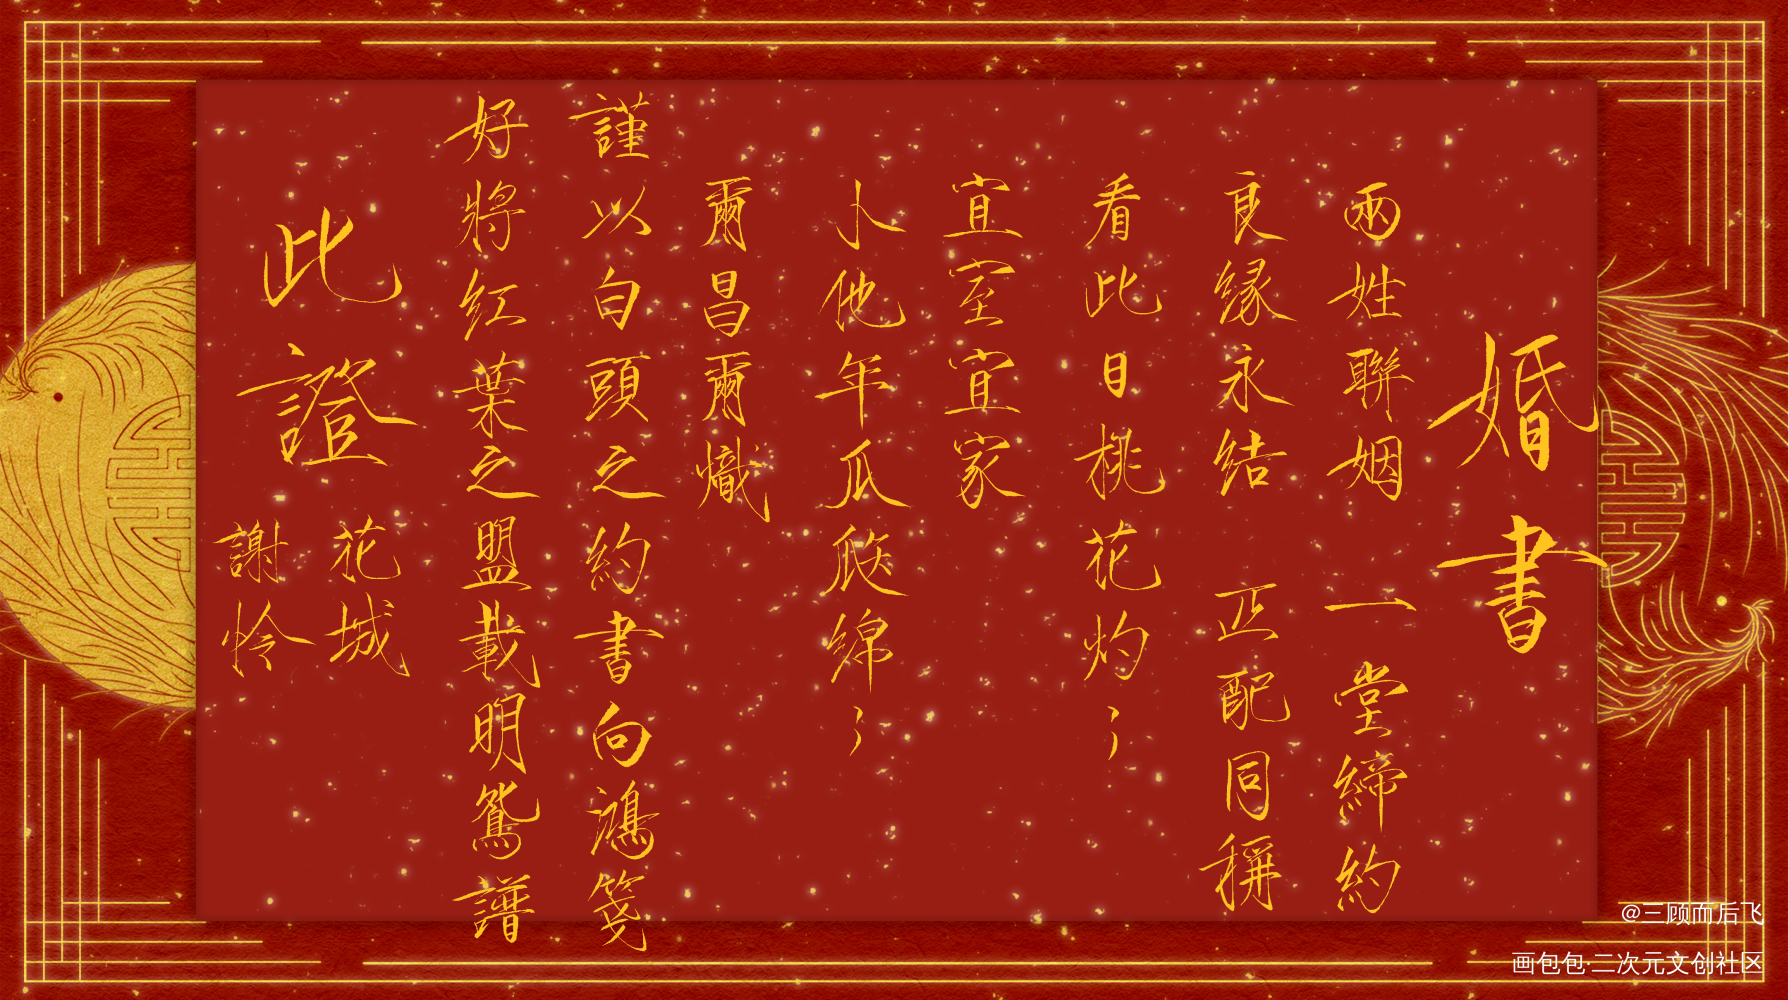 婚書
兩姓聯姻 一堂締約
良緣永結 匹配同稱
看此日桃花灼灼
宜室宜家
卜他年瓜瓞綿綿
爾昌爾熾
謹以白頭之約書向鴻箋
好將红葉之盟載明鴛譜
此證
花城
謝怜
@三顾而后飞
画包包·二次元文创社区